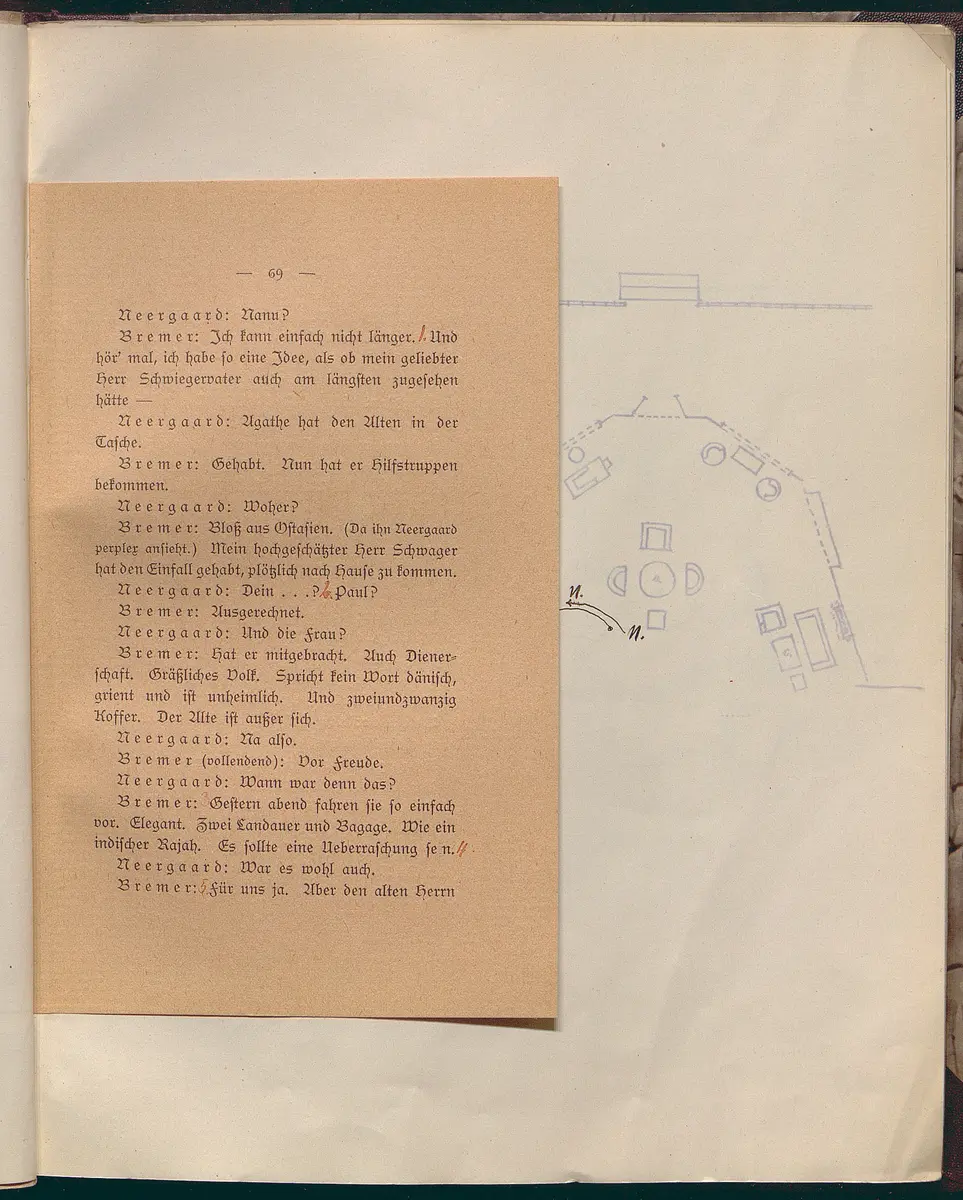 — 69 —
Neergaard: Nanu?
Bremer: Ich kann einfach nicht länger. 1. Und
hör' mal, ich habe so eine Idee, als ob mein geliebter
Herr Schwiegervater auch am längsten zugesehen
hätte —
Neergaard: Agathe hat den Alten in der
Tasche.
Bremer: Gehabt. Nun hat er Hilfstruppen
bekommen.
Neergaard: Woher?
Bremer: Bloß aus Ostasien. (Da ihn Neergaard
perplex ansieht.) Mein hochgeschätzter Herr Schwager
hat den Einfall gehabt, plötzlich nach Hause zu kommen.
Neergaard: Dein . . .? Paul?
Bremer: Ausgerechnet.
Neergaard: Und die Frau?
Bremer: Hat er mitgebracht. Auch Diener-
schaft. Gräßliches Volk. Spricht kein Wort dänisch,
grient und ist unheimlich. Und zweiundzwanzig
Koffer. Der Alte ist außer sich.
Neergaard: Na also.
Bremer (vollendend): Vor Freude.
Neergaard: Wann war denn das?
Bremer: Gestern abend fahren sie so einfach
vor. Elegant. Zwei Landauer und Bagage. Wie ein
indischer Rajah. Es sollte eine Ueberraschung se n. 4.
Neergaard: War es wohl auch.
Bremer: 5. Für uns ja. Aber den alten Herrn
N.
N.